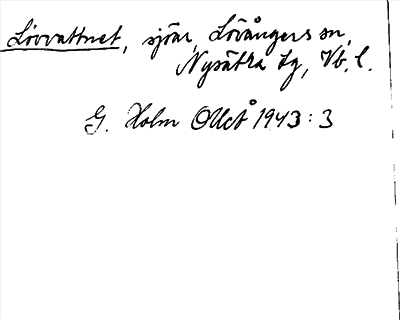 Lövvattnet, sjöar, Lövångers sn,
Nysätra tg, Vb. l.
G. Holm OUÅ 1943:3